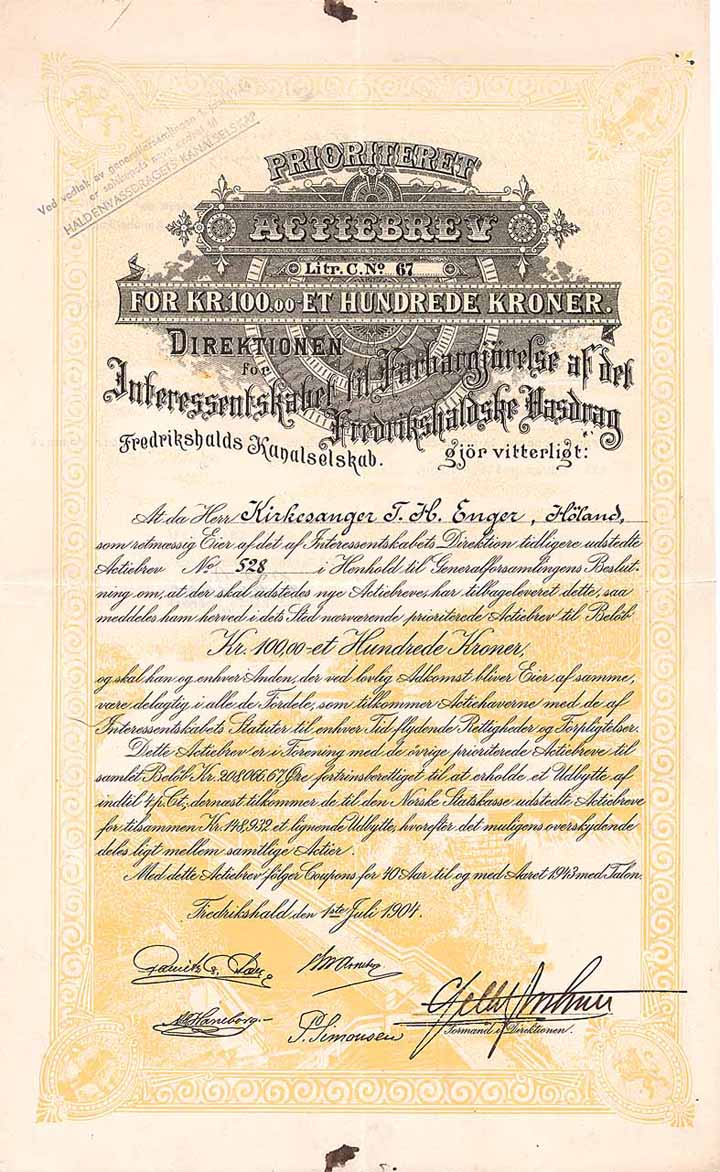 Ved vedtak av generalforsamlingen
er selskapets navn endret til
HALDENVASSDRAGETS KANALSELSKAP
PRIORITERET
ACTIEBREV
Litr. C. No 67
FOR KR. 100.00 ET HUNDREDE KRONER.
DIREKTIONEN
for
Interessentskabet til Farbargjörelse af det
Fredrikshaldske Vasdrag
Fredrikshalds Kanalselskab. gjör vitterligt:
At da Herr Kirkesanger T. H. Enger, Höland,
som retmæssig Eier af det af Interessentskabets Direktion tidligere udstedte
Actiebrev No 528 i Henhold til Generalforsamlingens Beslut-
ning om, at der skal udstedes nye Actiebreve, har tilbageleveret dette, saa
meddeles ham herved i dets Sted nærværende prioriterede Actiebrev til Belöb
Kr. 100,00 - et Hundrede Kroner,
og skal han og enhver Anden, der ved lovlig Adkomst bliver Eier af samme,
være delagtig i alle de Fordele, som tilkommer Actiehaverne med de af
Interessentskabets Statuter til enhver Tid flydende Rettigheder og Forpligtelser.
Dette Actiebrev er i Forening med de övrige prioriterede Actiebreve til
samlet Belöb Kr. 208,066,67 Øre fortrinsberettiget til at erholde et Udbytte af
indtil 4 p. Ct.; dernæst tilkommer de til den Norske Statskasse udstedte Actiebreve
for tilsammen Kr. 148,932 et lignende Udbytte, hvorefter det muligens overskydende
deles ligt mellem samtlige Actier.
Med dette Actiebrev følger Coupons for 40 Aar til og med Aaret 1943 med Talon.
Fredrikshald den 1ste Juli 1904.
Haneborg
P. Simonsen
Formand i Direktionen.